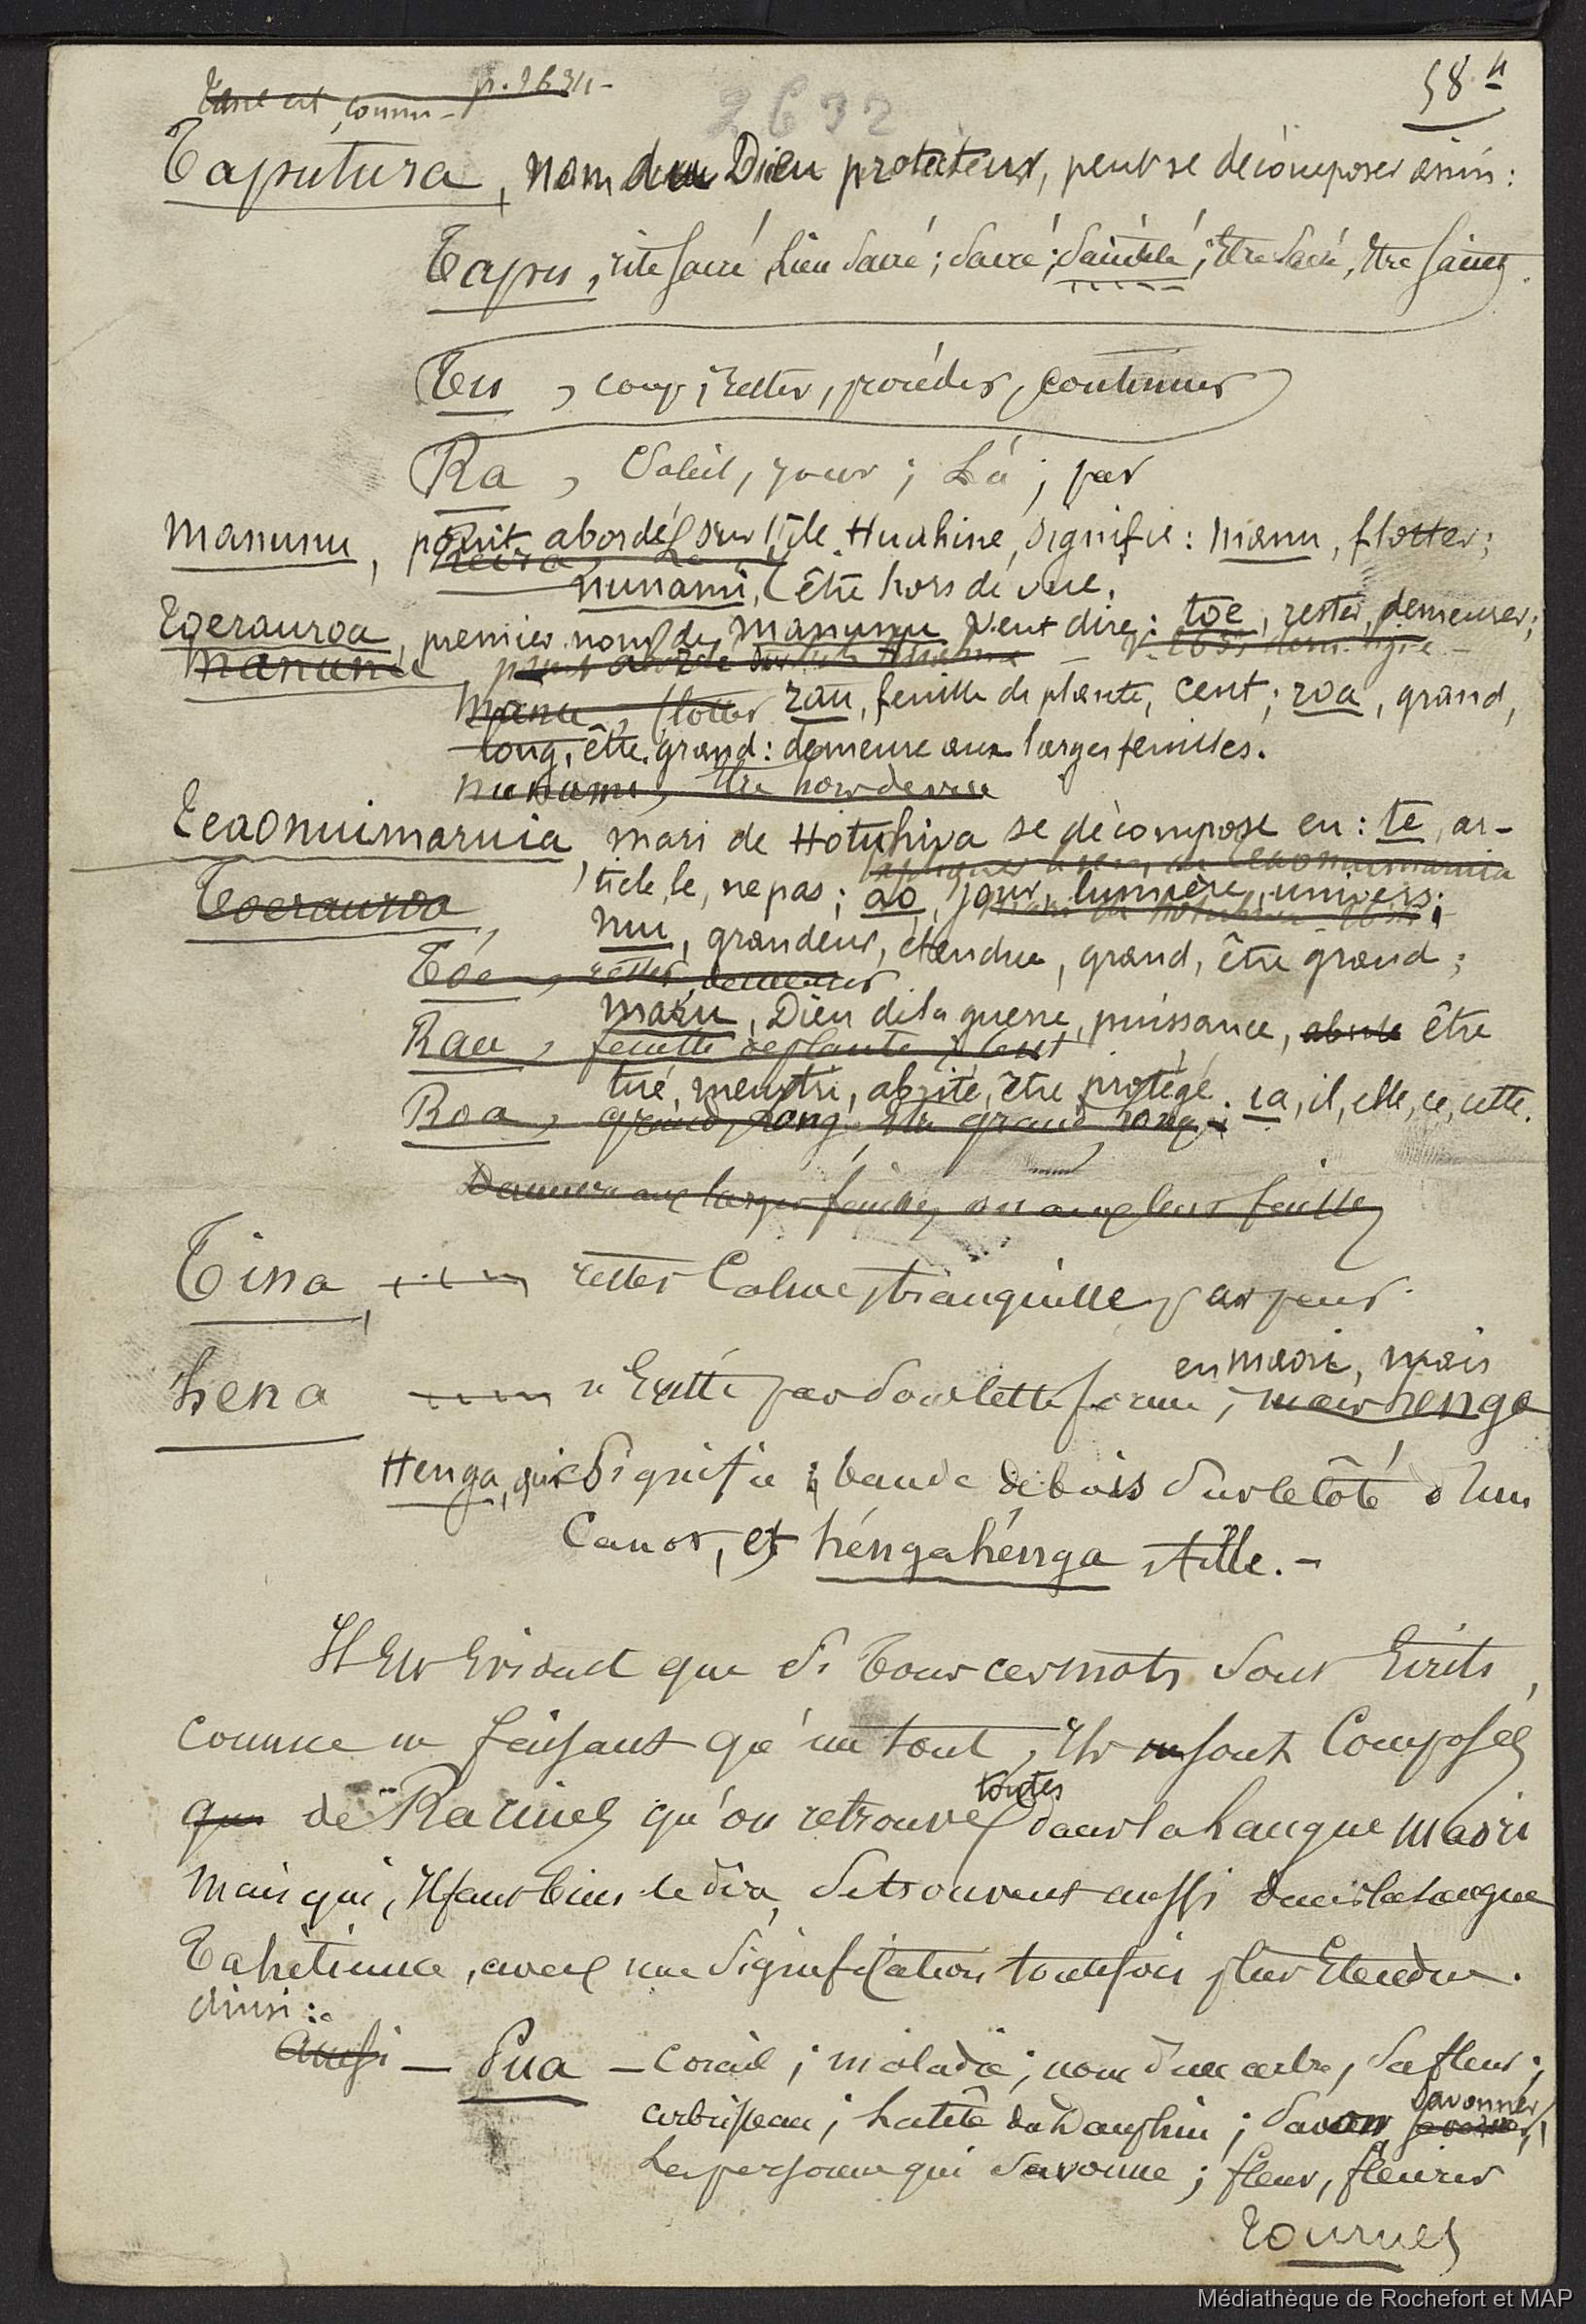 p. 2631 -
58 "
2632
Taputura, nom du Dieu protecteur, peut se décomposer ainsi :
Tapu, rite sacré, Lieu Sacré ; Sacré ; Sainteté ; Etre Sacré, Etre Saint.
Tu, coup ; rester, procéder, continuer
Ra, Soleil, jour ; Là ; par
Manunu, point abordé sur l'île Huahine, signifie : manu, flotter ;
nunami, être hors de vue.
Toerauroa, premier nom de Manunu veut dire : toe, rester, demeurer ;
Manunu
Manu, flotter rau, feuille de plante, cent ; roa, grand,
long, être grand : demeure aux larges feuilles.
nunami, Etre hors de vue
Teaonuimaruia, mari de Hotuhiva se décompose en : te, ar-
ticle, le, ne pas ; ao, jour, lumière, univers ;
Toerauroa,
nui, grandeur, étendue, grand, être grand ;
Toe, rester, demeurer
maru, Dieu de la guerre, puissance, être
Rau, feuille de plante ; Cent
tué, meurtri, abrité, être protégé. ia, il, elle, ce, cette.
Roa, grand, long, Etre grand, long ;
Demeure aux larges feuilles, ou aux cent feuilles
Tina, rester Calme, tranquille, par peur.
hena n'Existe pas sous cette forme, en maori, mais
mais henga
Henga, qui Signifie : bande de bois sur le côté d'un
Canot, et héngahénga, fille. -
Il Est Evident que Si tous ces mots sont Ecrits,
comme ne faisant qu'un tout, Ils sont Composés
que de Racines qu'on retrouve toutes dans la Langue Maori
Mais qui, Il faut bien le dire, Se trouvent aussi dans la Langue
Tahitienne, avec une Signification toutefois plus Etendue.
Ainsi :
Aussi — Pua — Corail ; maladie ; nom d'un arbre, Sa fleur ;
arbrisseau ; La tête du Dauphin ; Savon, savonner,
La personne qui Savonne ; fleur, fleurir
Tournez
Médiathèque de Rochefort et MAP